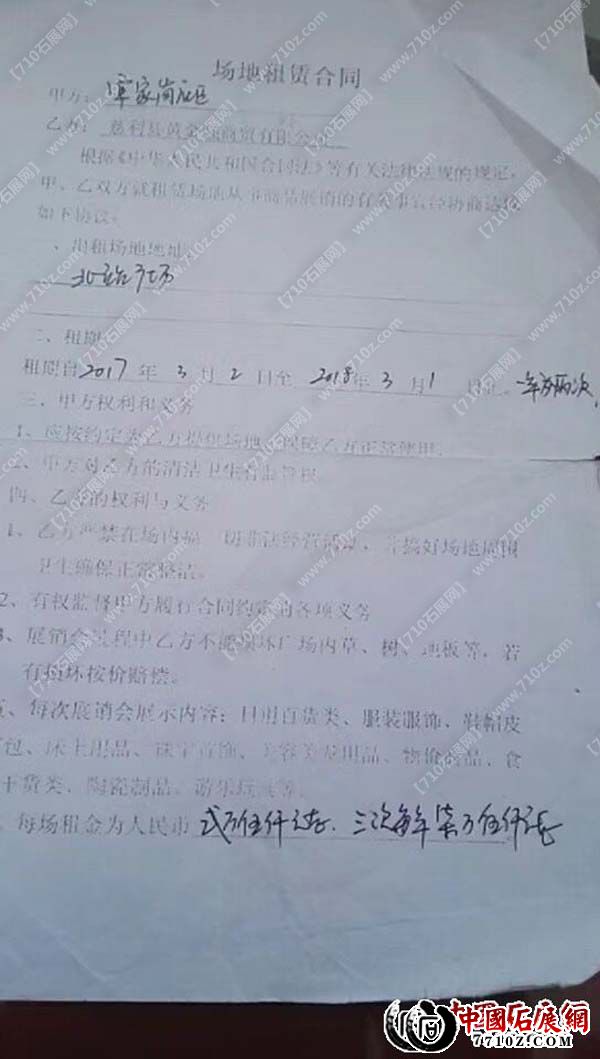 场地租赁合同
甲方: 覃家岗社区
乙方: 慈利县黄金 商贸有限公司
根据《中华人民共和国合同法》等有关法律法规的规定,
甲、乙双方就租赁场地从事商品展销的有关事宜经协商达成
如下协议。
、出租场地地址
北站广场
二、租期
租期自2017年3月2日至2018年3月1日止。一年 两次
三、甲方权利和义务
1、应按约定为乙方提供场地 保障乙方正常使用。
2、甲方对乙方的清洁卫生有监管权
四、乙方的权利与义务
1、乙方严禁在场内搞一切非法经营活动,并搞好场地周围
卫生确保正常整洁。
2、有权监督甲方履行合同约定的各项义务
3、展销会过程中乙方不能损坏广场内草、树、地板等,若
有损坏按价赔偿。
、每次展销会展示内容:日用百货类、服装服饰、鞋帽皮
包、床上用品、珠宝首饰、美容美发用品、物价商品、食
干货类、陶瓷制品、游乐玩具等。
、每场租金为人民币 贰万伍仟元整、三次每年柒万伍仟元整
中國石展網
7710Z.com
【710石展网】www.710z.com